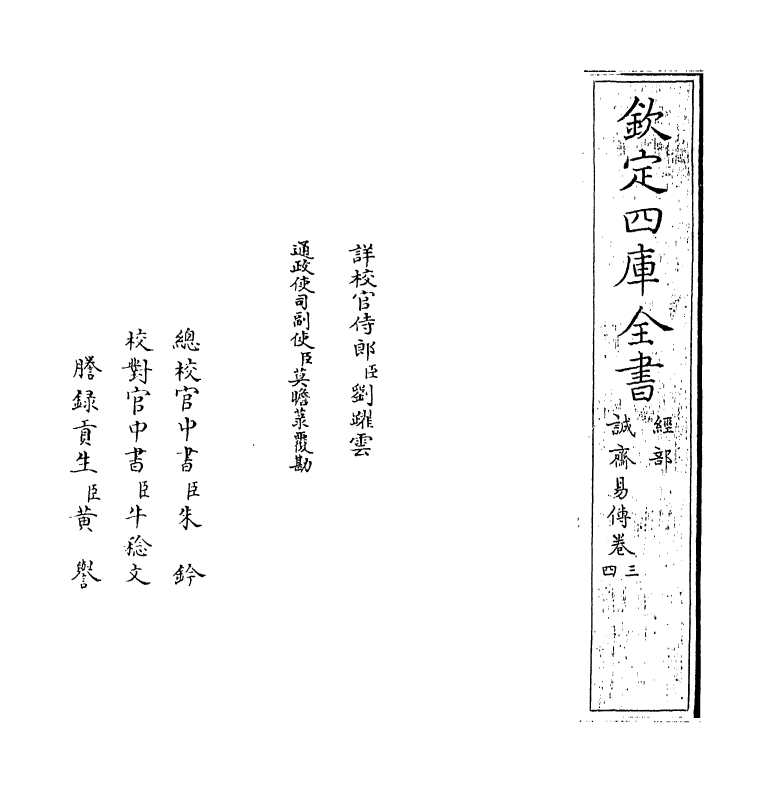 欽定四庫全書
經部
誠齋易傳卷三四
詳校官侍郎臣劉躍雲
通政使司副使臣莫瞻菉覆勘
總校官中書臣朱鈐
校對官中書臣牛稔文
謄錄貢生臣黃譽